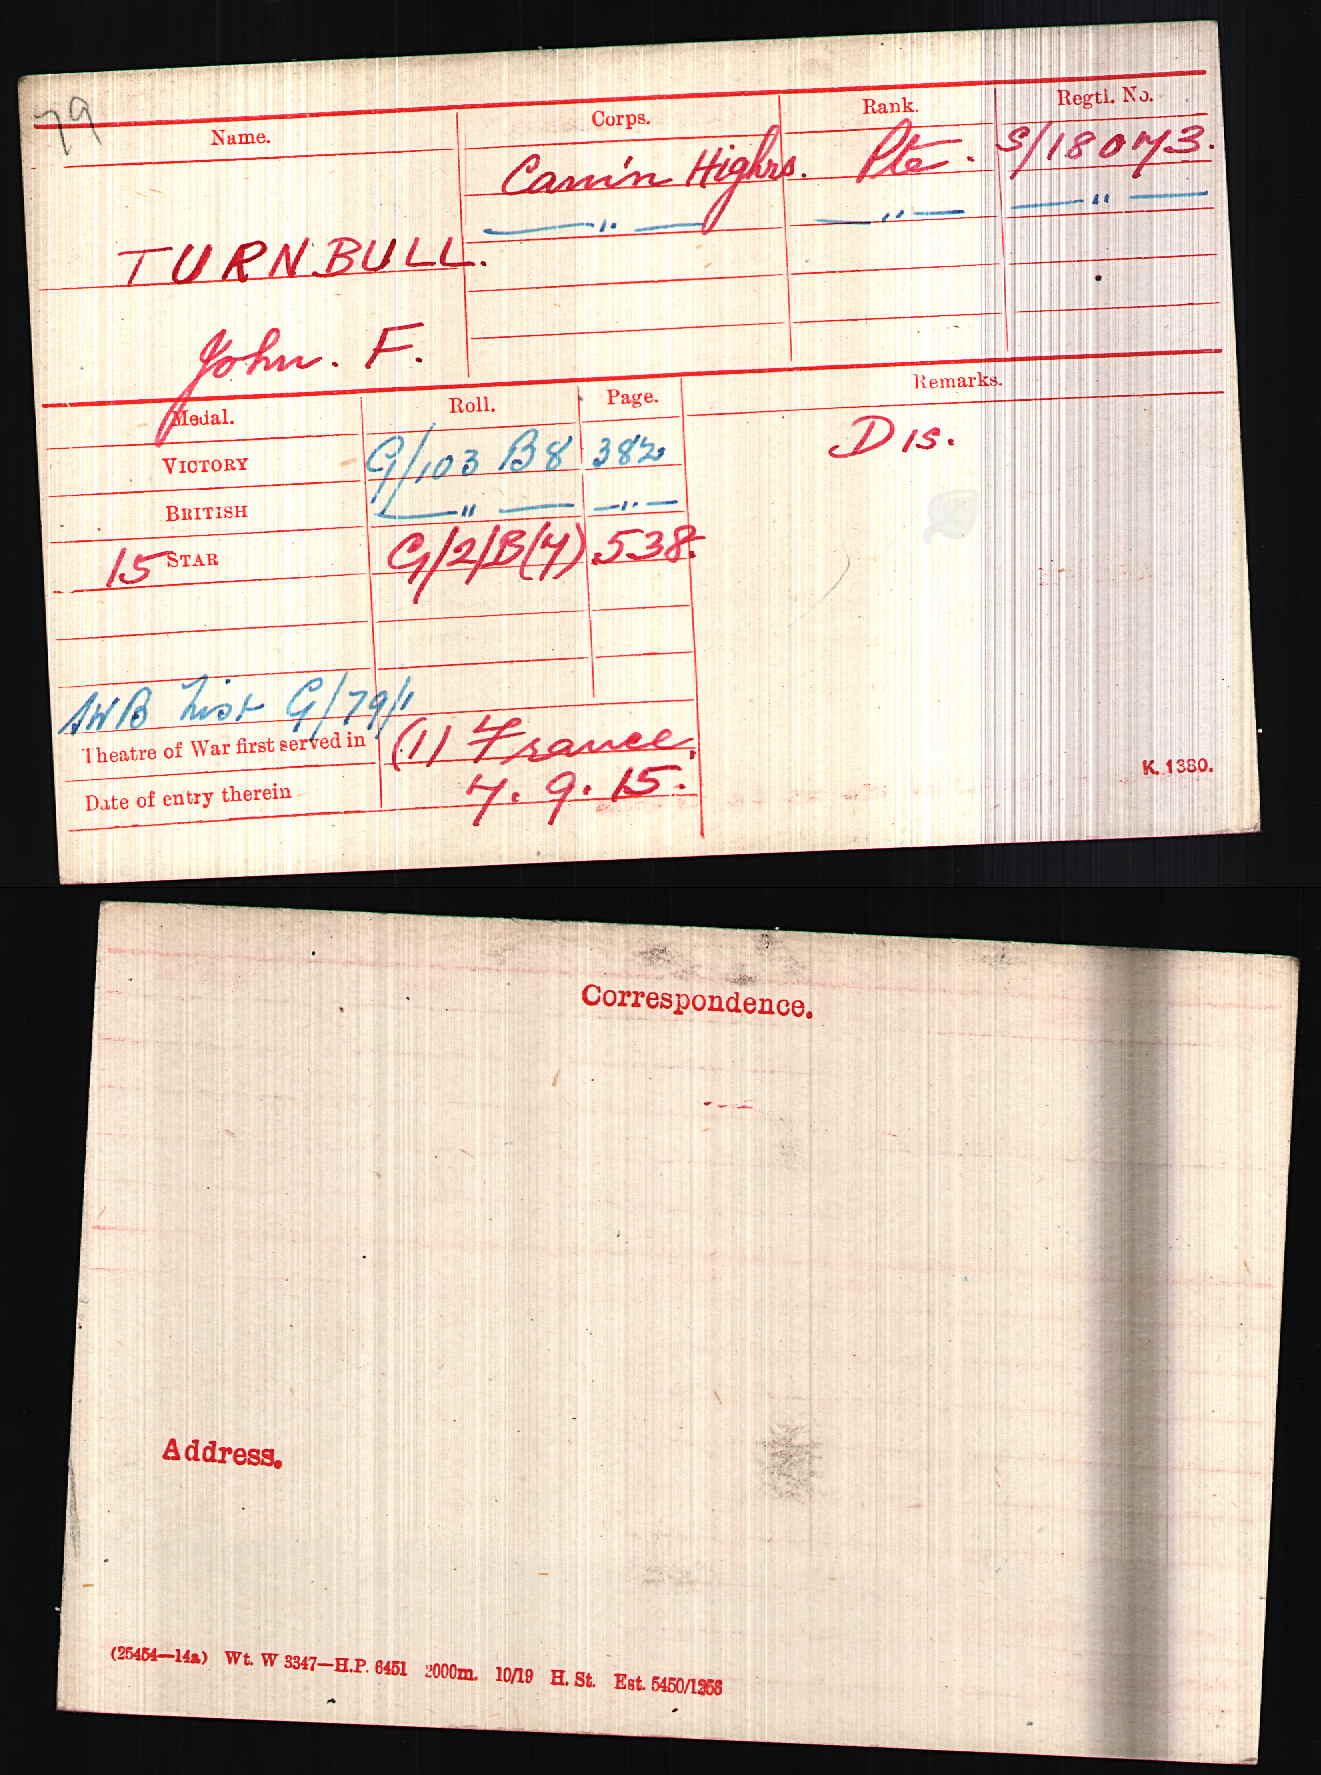 79
Name. Corps. Rank. Regtl. No.
Cam'n Highrs. Pte. S/18073.
—"— —"— —"—
TURNBULL.
John. F.
Medal. Roll. Page. Remarks.
VICTORY G/103 B8 382 Dis.
BRITISH —"— —"—
15 STAR G/2/B(7) 538.
SWB List G/79/1
Theatre of War first served in (1) France.
Date of entry therein 7.9.15.
K. 1380.
Correspondence.
Address.
(25454—14a) Wt. W 3347—H.P. 6451 2000m. 10/19 H. St. Est. 5450/1256